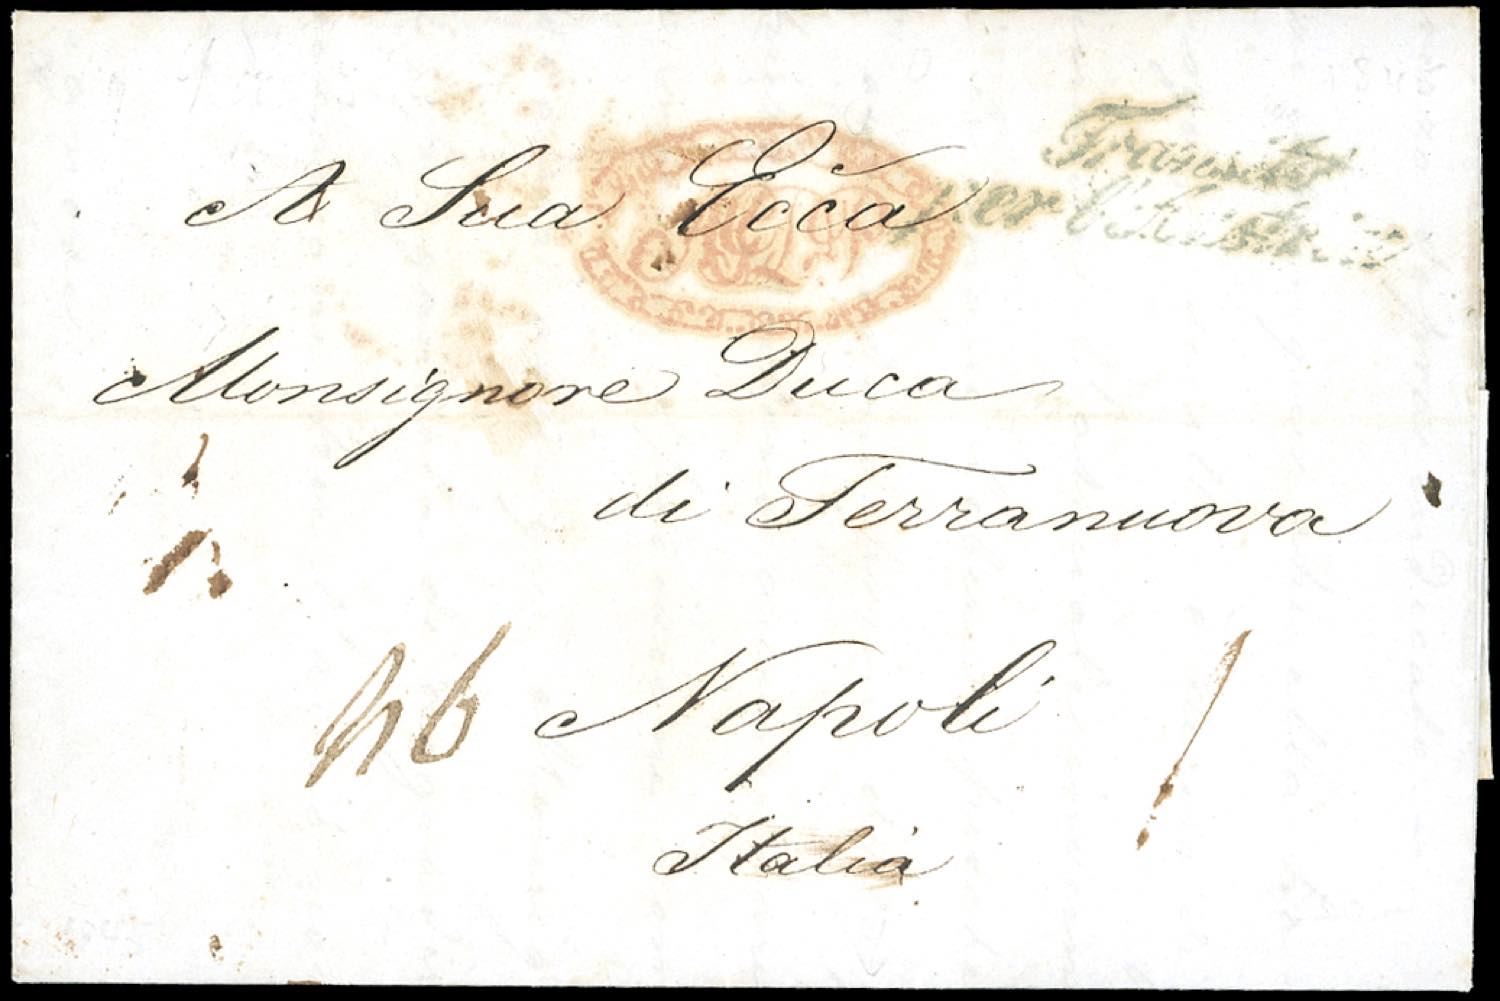 A Sua Ecca
Transito
per l'Austria
Monsignore Duca
di Terranuova
Napoli
Italia